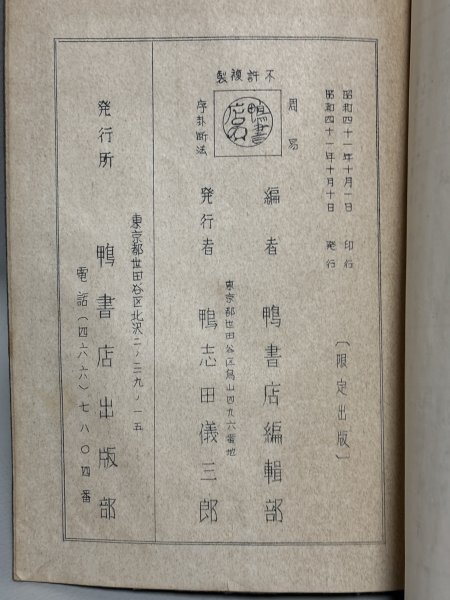 昭和四十一年十月一日 印行
昭和四十一年十月十日 発行
〔限定出版〕
不許複製
周易
鴨書店
序卦断法
編者 鴨書店編輯部
東京都世田谷区烏山四九六番地
発行者 鴨志田儀三郎
東京都世田谷区北沢二ノ三九ノ一五
発行所 鴨書店出版部
電話(四六六)七八〇四番